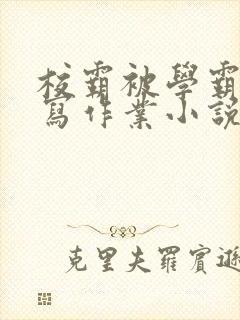 校霸被學霸
寫作業小說
克里夫羅賓遜